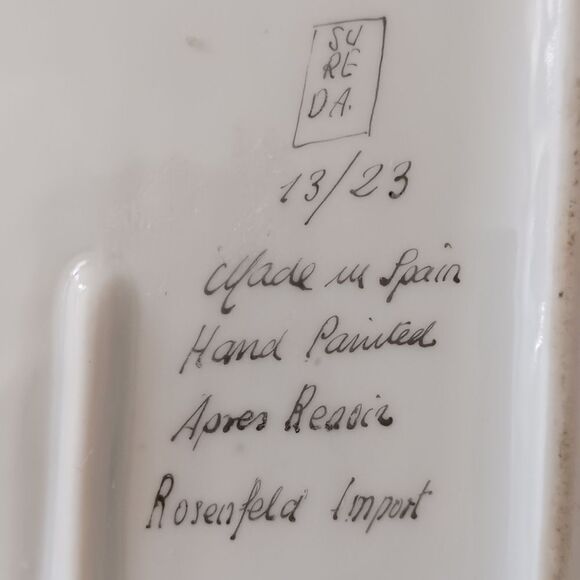 SU
RE
DA.
13/23
Made in Spain
Hand Painted
Apres Renoir
Rosenfeld Import